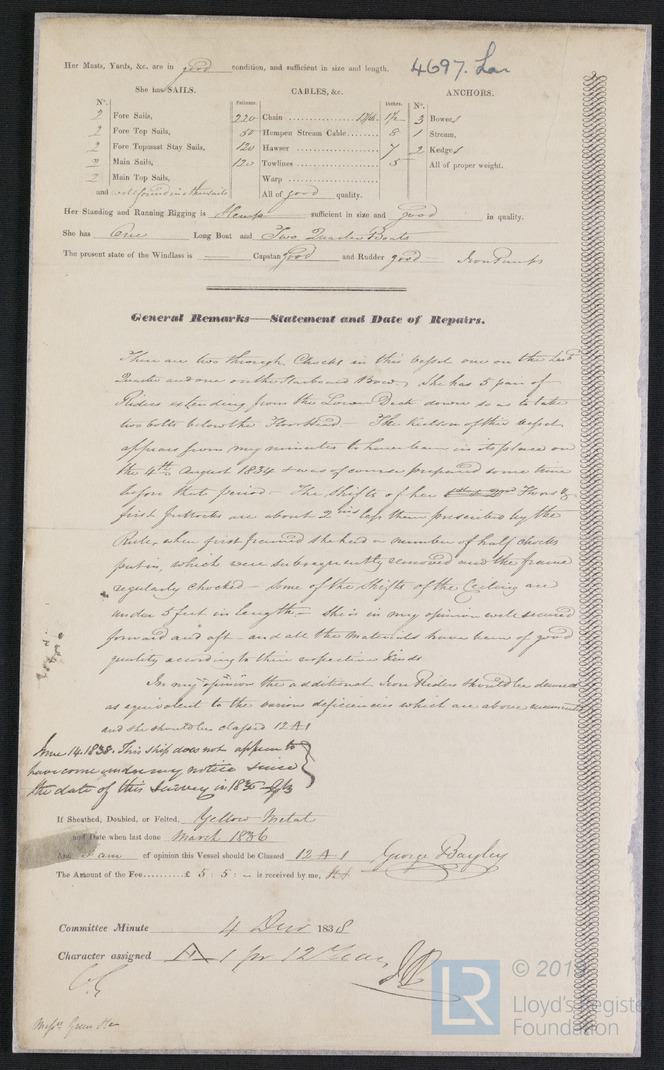 Her Masts, Yards, &c. are in good condition, and sufficient in size and length.
4697. Lon
She has SAILS.
CABLES, &c.
ANCHORS.
N°.
Fathoms.
Inches.
N°.
2 Fore Sails,
2 Fore Top Sails,
2 Fore Topmast Stay Sails,
2 Main Sails,
2 Main Top Sails,
and well found in other sails
Chain 220 1½
Hempen Stream Cable 80 8
Hawser 120 7
Towlines 120 5
Warp
All of good quality.
3 Bowers
1 Stream,
2 Kedges
All of proper weight.
Her Standing and Running Rigging is Hemp sufficient in size and Good in quality.
She has One Long Boat and Two Quarter Boats
The present state of the Windlass is Capstan Good and Rudder good Iron Pumps
General Remarks—Statement and Date of Repairs.
There are two through Chocks in this vessel one on the Larb
Quarter and one on the Starboard Bow, She has 5 pair of
Riders extending from the Lower Deck down so as to take
two bolts below the Floor Head — The Keelson of this vessel
appears from my minutes to have been in its place on
the 4th August 1834 & was of course prepared some time
before that period — The Shifts of her Floors &
first futtocks are about 2 ins less than prescribed by the
Rule, when first framed she had a number of half chocks
put in, which were subsequently removed and the frame
regularly chocked — Some of the Shifts of the Ceiling are
under 5 feet in length — She is in my opinion well secured
forward and aft — and all the materials have been of good
quality according to their respective Kinds
In my opinion the additional Iron Riders should be deemed
as equivalent to the various deficiencies which are above
and she should be classed 12 A 1
June 14. 1838. This ship does not appear to
have come under my notice since
the date of this survey in 1836
If Sheathed, Doubled, or Felted, Yellow Metal
and Date when last done March 1836
And I am of opinion this Vessel should be Classed 12 A 1 George Bayley
The Amount of the Fee £ 5 : 5 : — is received by me,
Committee Minute 4 Decr 1838
Character assigned A 1 for 12 Years
Messrs Green
LR
© 2019
Lloyd's Register
Foundation